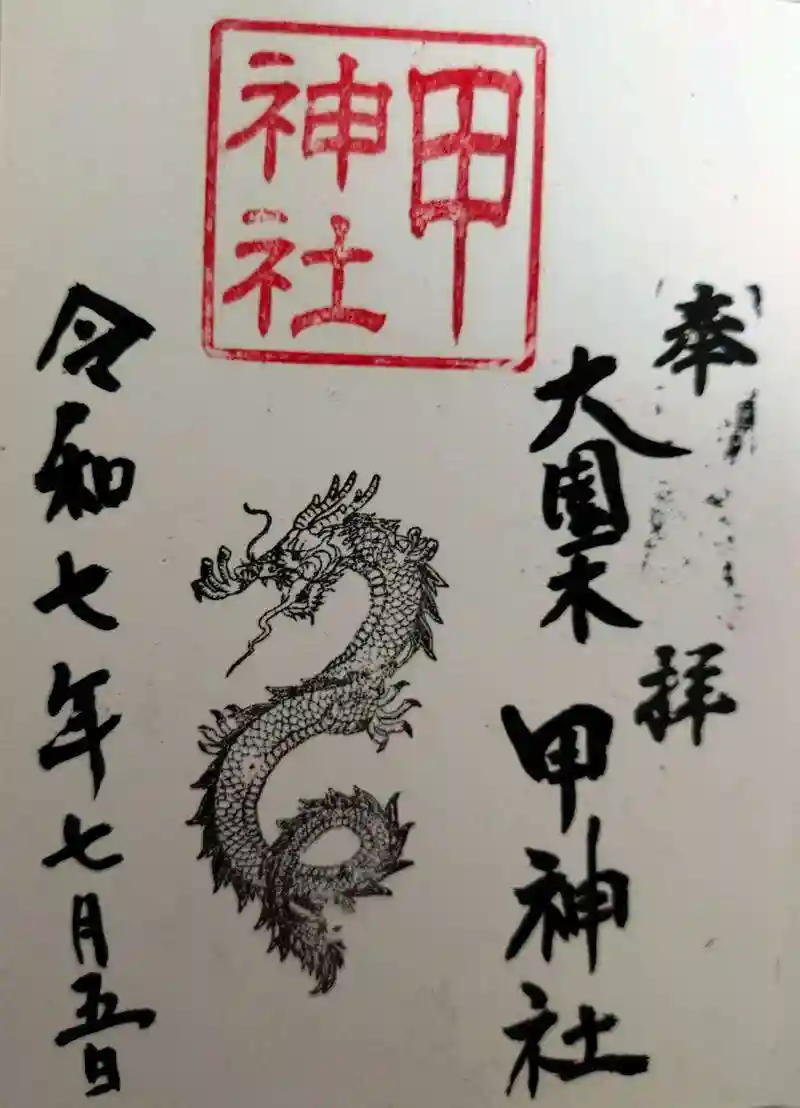 奉拝
大園木
甲神社
甲
神社
令和七年七月五日